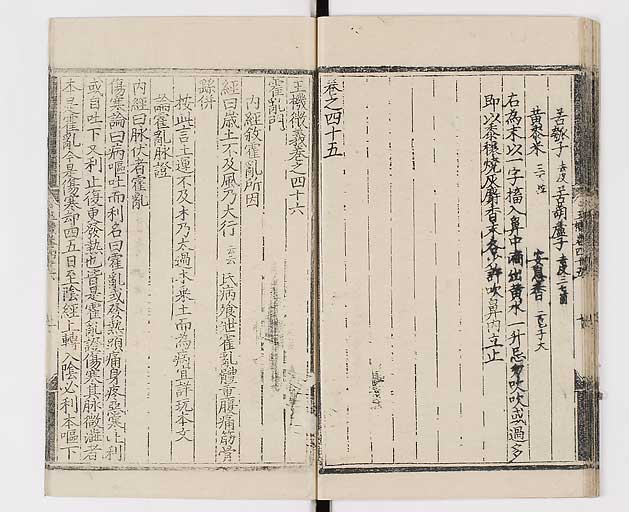 苦瓠子 去皮 苦葫蘆子 去皮三七箇
黄黍米 三六粒 安息香 二皂子大
右為末以一字搐入鼻中滴出黄水一升忌多吹吹或過多
即以黍穰燒灰麝香末各少許吹鼻内立止
卷之四十五
玉機微義卷之四十六
霍亂門
内經敘霍亂所因
經曰歲土不及風乃大行 云云 民病飧泄霍亂體重腹痛筋骨
繇併
按此言土運不及木乃太過木乘土而為病宜詳玩本文
論霍亂脉證
内經曰脉伏者霍亂
傷寒論曰病嘔吐而利名曰霍亂或發熱頭痛身疼惡寒吐利
或自吐下又利止復更發熱也皆是霍亂證傷寒其脉微濇者
本是霍亂今是傷寒却四五日至陰經上轉入陰必利本嘔下